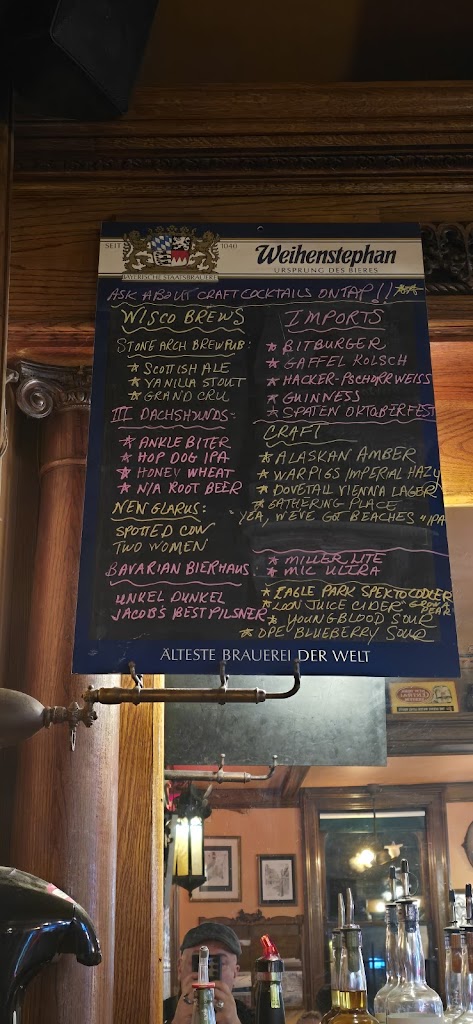 SEIT 1040
Weihenstephan
BAYERISCHE STAATSBRAUEREI
URSPRUNG DES BIERES
ASK ABOUT CRAFT COCKTAILS ON TAP!!
WISCO BREWS
STONE ARCH BREWPUB:
SCOTTISH ALE
VANILLA STOUT
GRAND CRU
III DACHSHUNDS:
ANKLE BITER
HOP DOG IPA
HONEY WHEAT
N/A ROOT BEER
NEW GLARUS:
SPOTTED COW
TWO WOMEN
BAVARIAN BIERHAUS
UNKEL DUNKEL
JACOB'S BEST PILSNER
IMPORTS
BITBURGER
GAFFEL KOLSCH
HACKER-PSCHORR WEISS
GUINNESS
SPATEN OKTOBERFEST
CRAFT
ALASKAN AMBER
WARPIGS IMPERIAL HAZY
DOVETAIL VIENNA LAGER
GATHERING PLACE
YEA, WE'VE GOT BEACHES IPA
MILLER LITE
MIC ULTRA
EAGLE PARK SPEKTOCOOLER
LOON JUICE CIDER
YOUNGBLOOD SOUR
DPE BLUEBERRY SOUR
ÄLTESTE BRAUEREI DER WELT